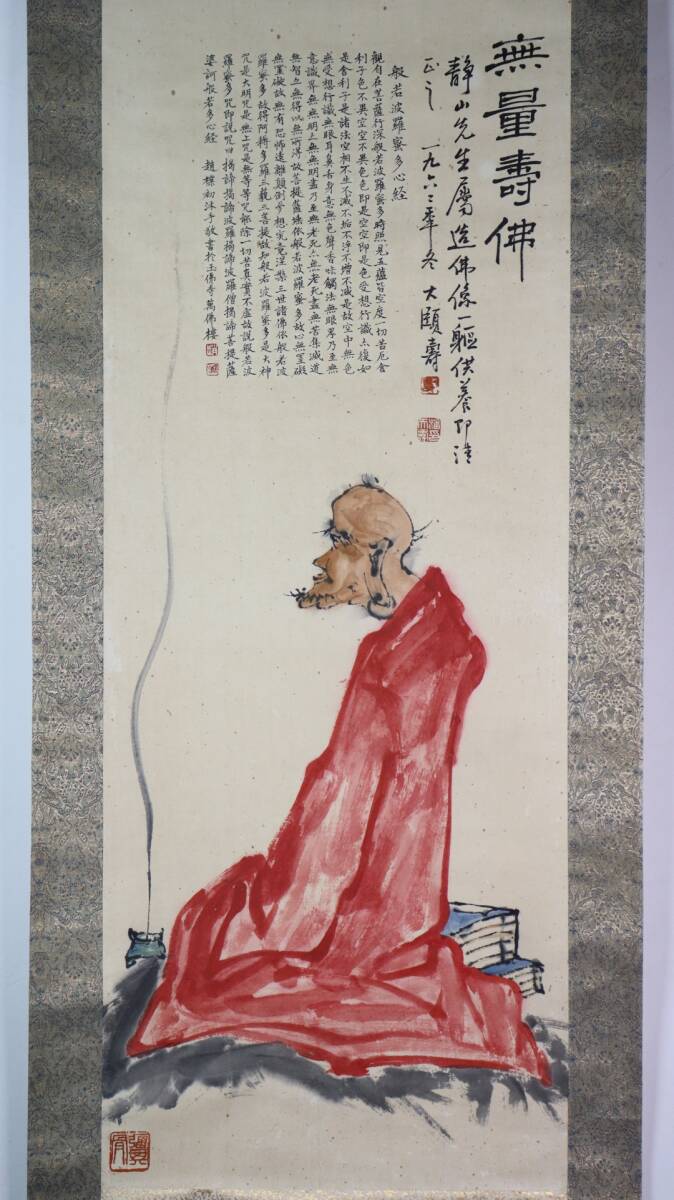 無量壽佛
靜山先生屬造佛像一軀供養即請
正之 一九六二年冬 大頤壽
般若波羅蜜多心経
觀自在菩薩行深般若波羅蜜多時照見五蘊皆空度一切苦厄舍
利子色不異空空不異色色即是空空即是色受想行識亦復如
是舍利子是諸法空相不生不滅不垢不淨不增不減是故空中無色
無受想行識無眼耳鼻舌身意無色聲香味觸法無眼界乃至無
意識界無無明亦無無明盡乃至無老死亦無老死盡無苦集滅道
無智亦無得以無所得故菩提薩埵依般若波羅蜜多故心無罣礙
無罣礙故無有恐怖遠離顛倒夢想究竟涅槃三世諸佛依般若波
羅蜜多故得阿耨多羅三藐三菩提故知般若波羅蜜多是大神
咒是大明咒是無上咒是無等等咒能除一切苦真實不虛故說般若波
羅蜜多咒即說咒曰揭諦揭諦波羅揭諦波羅僧揭諦菩提薩
婆訶般若多心經 趙樸初沐手敬書於玉佛寺萬佛樓